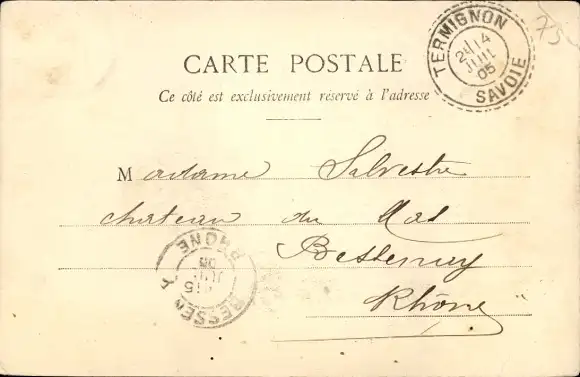 75
TERMIGNON
14
JUIL
05
SAVOIE
CARTE POSTALE
Ce côté est exclusivement réservé à l'adresse
Madame Salvestre
chateau du Mas
Bessenay
Rhône
RHONE
05
JUIL
15
BESSENAY